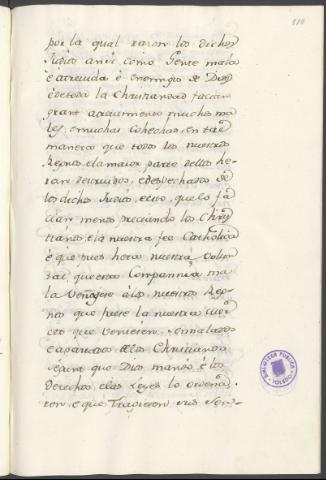 110
por la qual razon los dichos
Judios assi como Gente mala
è atreuida è enemigos de Dios
è de toda la Christiandad facian
grant atreuimento muchos ma
les, e muchos cohechos, en tal
manera que todos los nuestros
Regnos, e la maior parte dellos he
ran destruidos, è despechados de
los dichos Judios, e esto que lo fa
cian menos preciando los Chris
tianos, e la nuestra fee Catholica
è que pues hera nuestra volun
tad, que esta Compannia ma
la veniesse à los nuestros Reg
nos que fuese la nuestra mer
ced que veniesen sennalados
e apartados de los Christianos
segunt que Dios mandó è los
Derechos, e las Leyes lo ordena
ron, e que Tragiesen sus sen-
BIBLIOTECA PUBLICA
TOLEDO